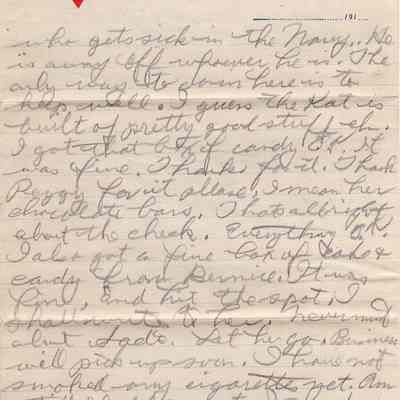 191
who gets sick in the Navy. He
is away off whoever he is. The
only way to down here is to
keep well. I guess the Kat is
built of pretty good stuff eh.
I got that box of candy O.K. it
was fine. Thanks for it. Thank
Peggy for it allso. I mean her
chocolate bars. Thats allright
about the check. Everything O.K.
I also got a fine box of cake &
candy from Bernice. It was
fine, and hit the spot. I
shall write to her. Never mind
about Let he go. Business
will pick up soon. I have not
smoked any cigarettes yet. Am